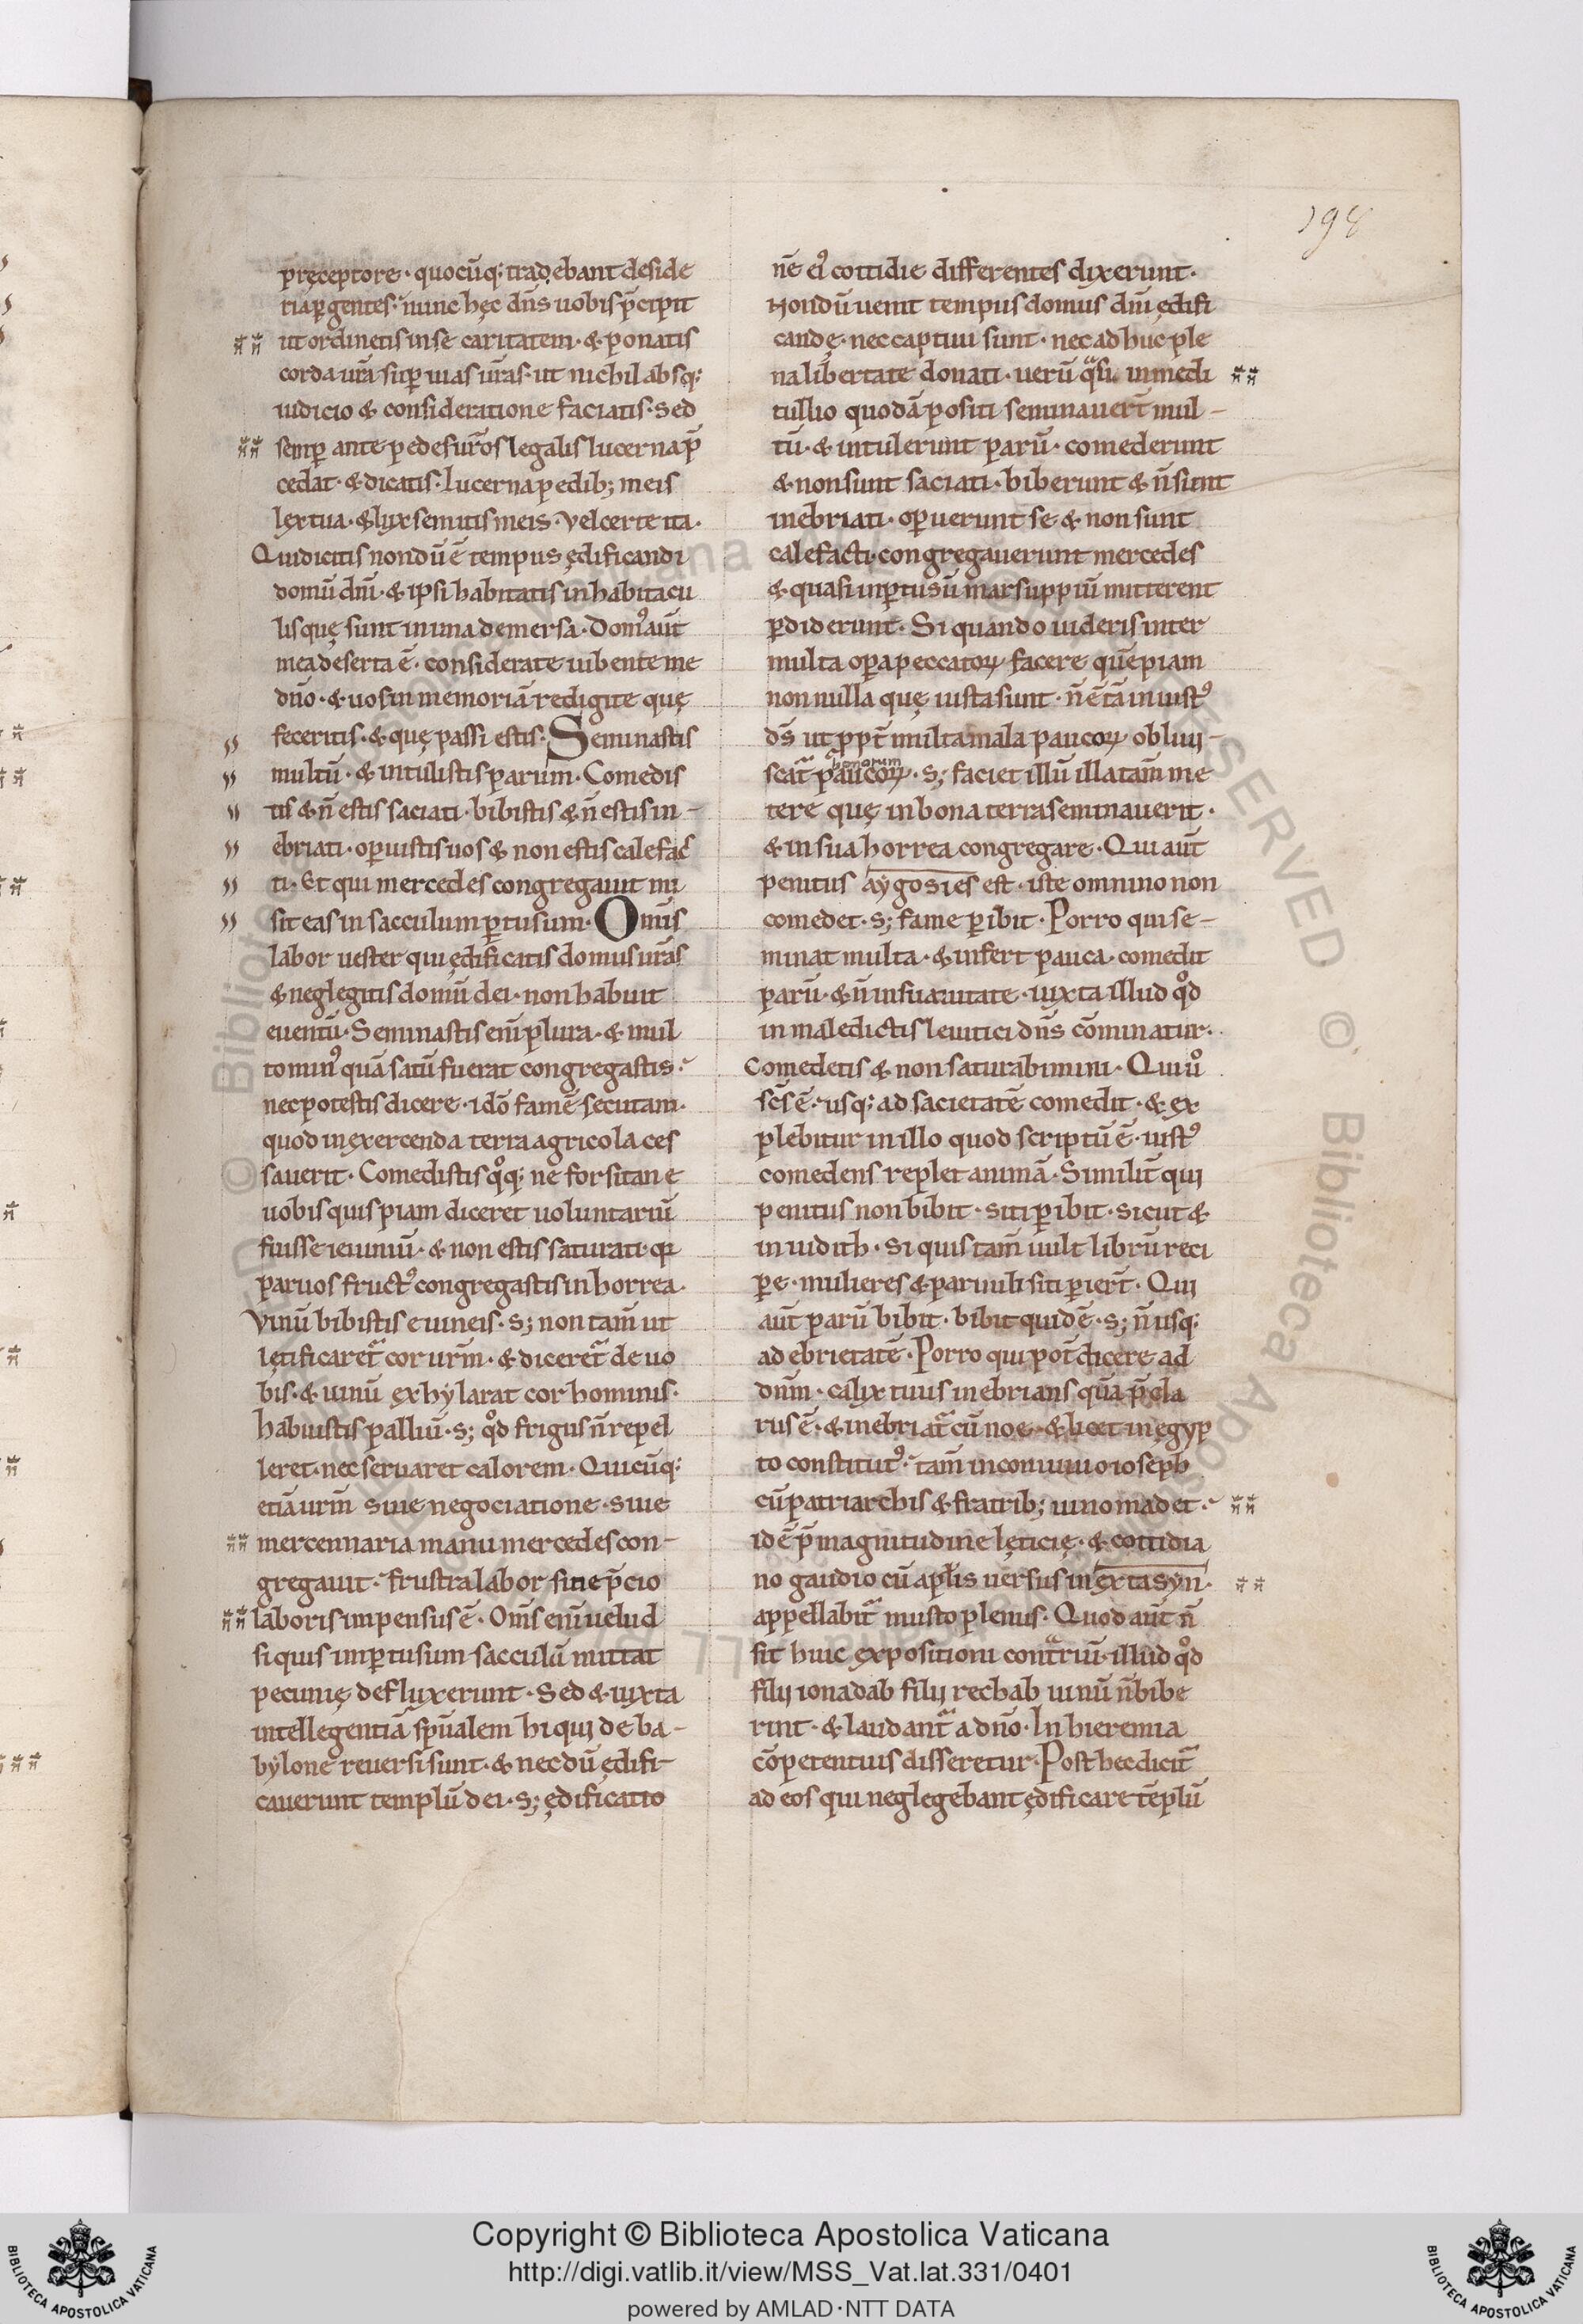 198
pręceptore· quocūq; tradebant deside
ria ꝑ gentes· nunc hęc dn̄s uobis p̄cipit
ut ordinetis in se caritatem· & ponatis
corda ur̄a suꝑ uias ur̄as· ut nichil absq;
iudicio & consideratione faciatis· Sed
semꝑ ante pedes ur̄os legalis lucerna p̄
cedat· & dicatis· Lucerna pedib; meis
lex tua· & lux semitis meis· Vel certe ita·
Qui dicitis nondū ē tempus ędificandi
domū dn̄i· & ipsi habitatis in habitacu
lis quę sunt in una demersa· Domꝰ aut̄
mea deserta ē· considerate iubente me
dn̄o· & uos in memoriā redigite quę
feceritis· & quę passi estis· Seminastis
multū· & intulistis parum· Comedis
tis & n̄ estis saciati· bibistis & n̄ estis in-
ebriati· oꝑuistis uos & non estis calefac
ti· Et qui mercedes congregauit mi
sit eas in sacculum ꝑtusum· Om̄is
labor uester qui ędificatis domus ur̄as
& neglegitis domū dei· non habuit
euentū· Seminastis eni̅ plura· & mul
to minꝰ quā satū fuerat congregastis·
nec potestis dicere· idō famē secutam·
quod in exercenda terra agricola ces
sauerit· Comedistis qͦq; ne forsitan e
uobis quispiam diceret uoluntariū
fuisse ieiuniū· & non estis saturati· qꝛ
paruos fructꝰ congregastis in horrea·
Vinū bibistis e uineis· s; non tam̄ ut
lętificaret̄ cor ur̄m· & diceret̄ de uo
bis· & uinū exhylarat cor hominis·
habuistis palliū· s; qͦd frigus n̄ repel
leret· nec seruaret calorem· Quicūq;
etiā ur̄m siue negociatione· siue
mercennaria manu mercedes con-
gregauit· frustra labor sine p̄cio
laboris inpensus ē· Om̄s eni̅ uelud
si quis in ꝑtusum sacculū mittat
pecunię defluxerunt· Sed & iuxta
intellegentiā spū̄alem hi qui de ba-
bylone reuersi sunt· & necdū ędifi-
cauerunt templū dei· s; ędificatio
nē eiꝰ cottidie differentes dixerunt·
Nondū uenit tempus domus dn̄i ędifi
candę· nec captiui sunt· nec adhuc ple
na libertate donati· uerū qͣsi in medi
tullio quodā positi seminauer̄t mul-
tū· & intulerunt parū· comederunt
& non sunt saciati· biberunt & n̄ sunt
inebriati· oꝑuerunt se & non sunt
calefacti· congregauerunt mercedes
& quasi in ꝑtusū marsuppiū mitterent
ꝑdiderunt· Si quando uideris inter
multa oꝑa peccatoꝝ facere quēpiam
non nulla quę iusta sunt· n̄ ē tā iniustꝰ
ds̄ ut ꝓpt̄ multa mala paucoꝝ obliui-
bonorum
scat̄ paucoꝝ· s; faciet illū illa tam̄ me
tere quę in bona terra seminauerit·
& in sua horrea congregare· Qui aut̄
penitus aygosies est· iste omnino non
comedet· s; fame ꝑibit· Porro qui se-
minat multa· & infert pauca· comedit
parū· & n̄ in suauitate· iuxta illud qͦd
in maledictis leuitici dn̄s cōminatur·
Comedetis & non saturabimini· Qui uͦ
scs̄ ē· usq; ad sacietatē comedit· & ex
plebitur in illo quod scriptū ē· iustꝰ
comedens replet animā· Similit̄ qui
penitus non bibit· siti ꝑibit· sicut &
in iudith· si quis tam̄ uult librū reci
ꝑe· mulieres & paruuli siti ꝑier̄t· Qui
aut̄ parū bibit· bibit quidē· s; n̄ usq;
ad ebrietatē· Porro qui pot̄ dicere ad
dn̄m· calix tuus inebrians quā p̄cla
rus ē· & inebriat̄ cū noe· & licet in egyp
to constitutꝰ· tam̄ in conuiuio ioseph
cū patriarchis & fratrib; uino madet·
idē p̄ magnitudine lęticię· & cottidia
no gaudio cū aplis uersus in extasyn·
appellabit̄ musto plenus· Quod aut̄ n̄
sit huic expositioni contͣriū· illud qͦd
filij ionadab filij rechab uinū n̄ bibe
rint· & laudant̄ a dn̄o· In hieremia
cōpetentius disseretur· Post hec dicit̄
ad eos qui neglegebant ędificare tēplū
Copyright © Biblioteca Apostolica Vaticana
http://digi.vatlib.it/view/MSS_Vat.lat.331/0401
powered by AMLAD·NTT DATA
BIBLIOTECA APOSTOLICA VATICANA
BIBLIOTECA APOSTOLICA VATICANA